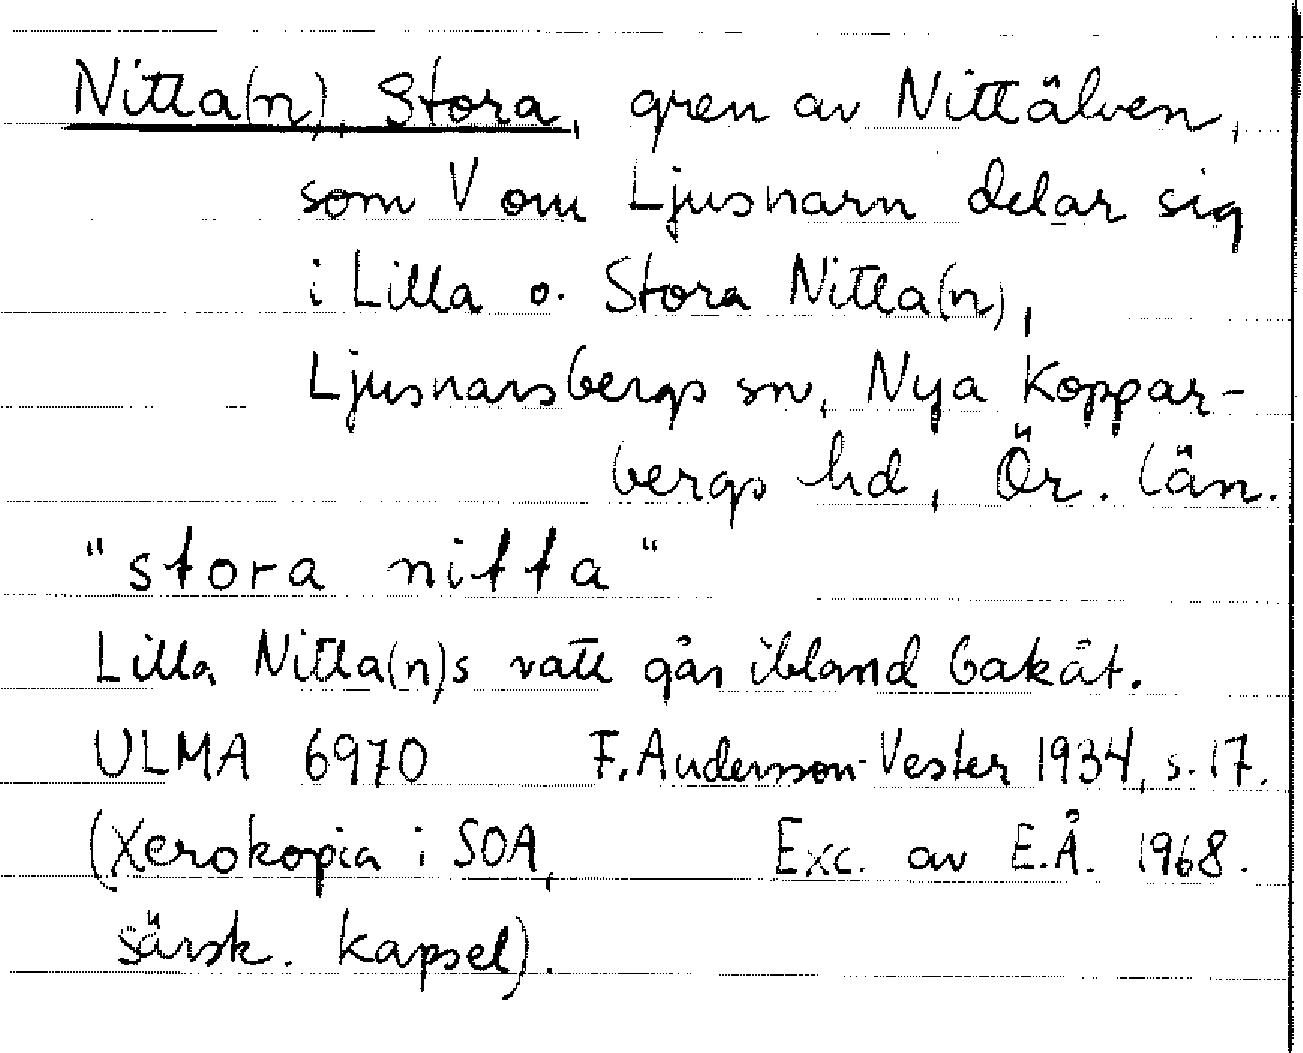 Nitta(n), Stora, gren av Nittälven,
som V om Ljusnarn delar sig
i Lilla o. Stora Nitta(n),
Ljusnarsbergs sn, Nya Koppar-
bergs hd, Ör. län.
"stora nitta"
Lilla Nitta(n)s vatt går ibland bakåt.
ULMA 6970 F. Andersson-Vester 1934, s. 17.
(Xerokopia i SOA, Exc. av E.Å. 1968.
särsk. kapsel).